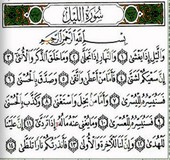 سُورَةُ اللَّيْلِ
بِسْمِ اللَّهِ الرَّحْمَٰنِ الرَّحِيمِ
وَاللَّيْلِ إِذَا يَغْشَىٰ ١ وَالنَّهَارِ إِذَا تَجَلَّىٰ ٢ وَمَا خَلَقَ الذَّكَرَ وَالْأُنثَىٰ ٣
إِنَّ سَعْيَكُمْ لَشَتَّىٰ ٤ فَأَمَّا مَنْ أَعْطَىٰ وَاتَّقَىٰ ٥ وَصَدَّقَ بِالْحُسْنَىٰ ٦
فَسَنُيَسِّرُهُ لِلْيُسْرَىٰ ٧ وَأَمَّا مَن بَخِلَ وَاسْتَغْنَىٰ ٨ وَكَذَّبَ بِالْحُسْنَىٰ ٩
فَسَنُيَسِّرُهُ لِلْعُسْرَىٰ ١٠ وَمَا يُغْنِي عَنْهُ مَالُهُ إِذَا تَرَدَّىٰ ١١ إِنَّ عَلَيْنَا
لَلْهُدَىٰ ١٢ وَإِنَّ لَنَا لَلْآخِرَةَ وَالْأُولَىٰ ١٣ فَأَنذَرْتُكُمْ نَارًا تَلَظَّىٰ ١٤